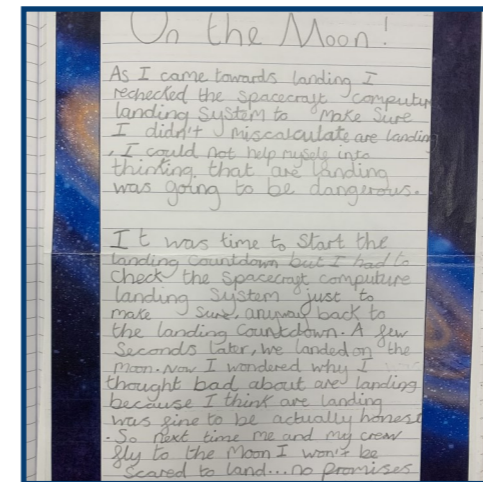 On the Moon!
As I came towards landing I
rechecked the spacecraft computure
landing system to make sure
I didn't miscalculate are landing
, I could not help myself into
thinking that are landing
was going to be dangerous.
It was time to start the
landing countdown but I had to
check the spacecraft computure
landing system just to
make sure, anyway back to
the landing countdown. A few
seconds later, we landed on the
moon. Now I wondered why I
thought bad about are landing
because I think are landing
was fine to be actually honest
. So next time me and my crew
fly to the Moon I won't be
scared to land... no promises